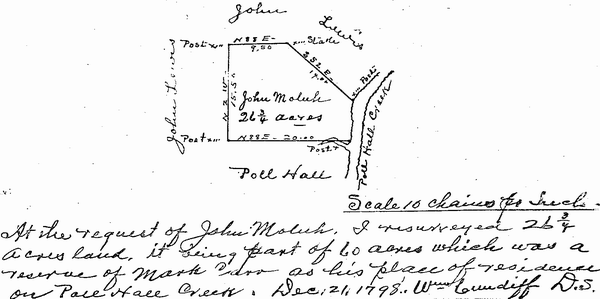 John
Lewis
John Lewis
Post
N 88 E
9.50
Stake
S 52 E
14.00
Post
N 2 W
15.50
John Moluh
26 3/4
acres
Post
N 88 E - 20.00
Post
Poll Hall Creek
Poll Hall
Scale 10 chains pr Inch.
At the request of John Moluh. I resurveyed 26 3/4
acres land, it being part of 60 acres which was a
reserve of Mark as his place of residence
on Poll Hall Creek. Dec. 21, 1798. Wm Cundiff D.S.